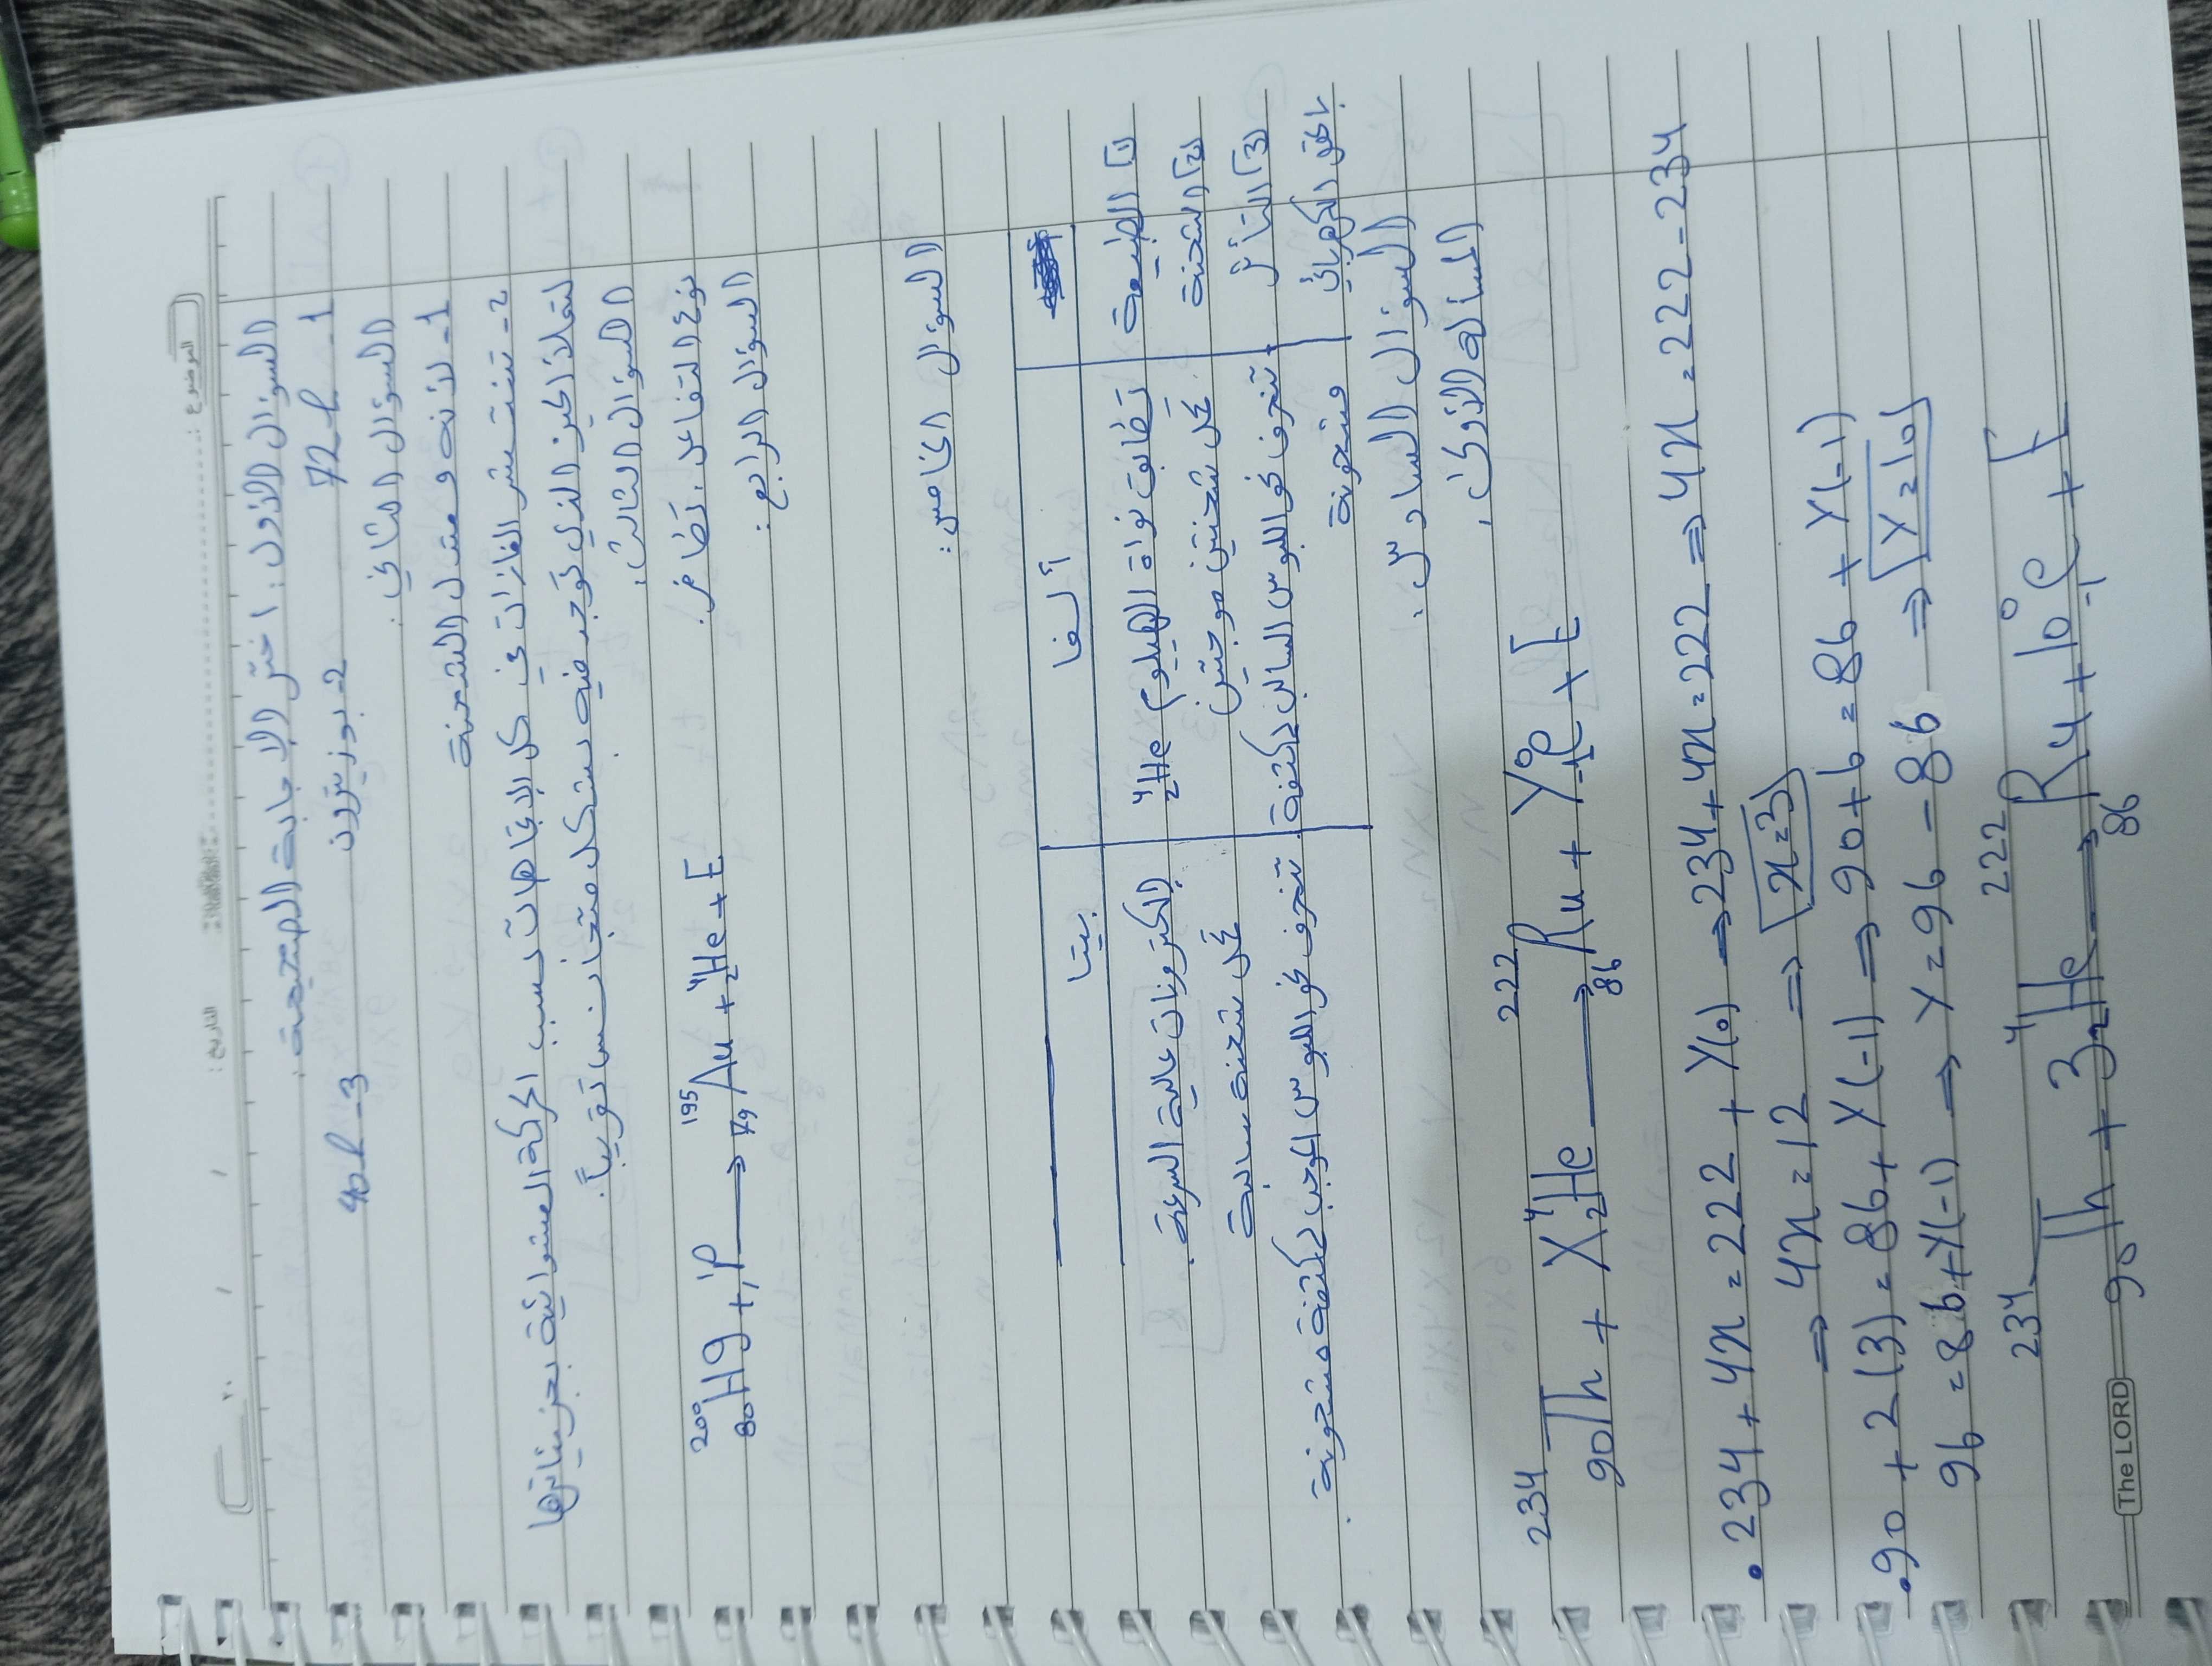 الموضوع: التاريخ: / / ٢٠
السؤال الأول: اختر الإجابة الصحيحة:
1- 72 h 2- بوزيترون 3- 40 h
السؤال الثاني:
1- لأنه معتدل الشحنة
2- تنتشر الغازات في كل الاتجاهات بسبب الحركة العشوائية بجزيئاتها
لتملأ الحيز الذي توجد فيه بشكل متجانس تقريباً.
السؤال الثالث:
نوع التفاعل: تطافر/ ²⁰⁰₈₀Hg + ¹₁P → ¹⁹⁵₇₉Au + ⁴₂He + E
السؤال الرابع:
السؤال الخامس:
ألفا بيتا
[1] الطبيعة تطابق نواة الهيليوم ⁴₂He إلكترونات عالية السرعة
[2] الشحنة تحمل شحنتين موجبتين تحمل شحنة سالبة
[3] التأثر تنحرف نحو اللبوس السالب لمكثفة تنحرف نحو اللبوس الموجب لمكثفة مشحونة.
بالحقل الكهربائي مشحونة
السؤال السادس:
المسألة الأولى:
²³⁴₉₀Th + X⁴₂He → ²²²₈₆Ru + Y⁰₋₁e + E
• 234 + 4x = 222 + Y(0) ⇒ 234 + 4x = 222 ⇒ 4x = 222 - 234
⇒ 4x = 12 ⇒ x = 3
• 90 + 2(3) = 86 + Y(-1) ⇒ 90 + 6 = 86 + Y(-1)
96 = 86 + Y(-1) ⇒ Y = 96 - 86 ⇒ Y = 10
²³⁴₉₀Th + 3⁴₂He → ²²²₈₆Ru + 10⁰₋₁e + E
The LORD